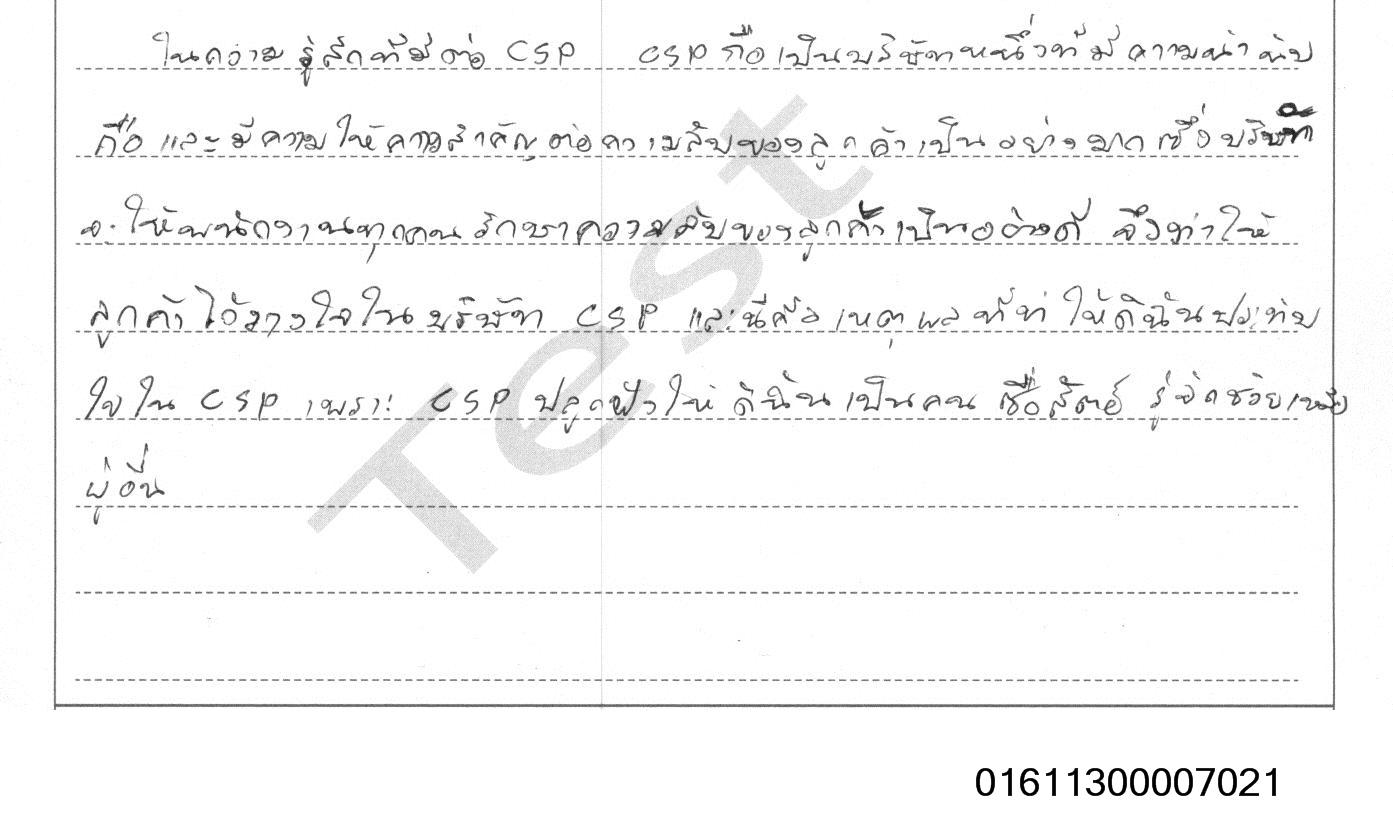 ในความรู้สึกที่มีต่อ CSP CSP ถือเป็นบริษัทหนึ่งที่มีความน่านับ
ถือ และมีความให้ความสำคัญต่อความลับของลูกค้าเป็นอย่างมาก ซึ่งบริษัท
จะให้พนักงานทุกคนรักษาความลับของลูกค้าเป็นอย่างดี จึงทำให้
ลูกค้าไว้วางใจในบริษัท CSP และนี่คือเหตุผลที่ทำให้ดิฉันประทับ
ใจใน CSP เพราะ CSP ปลูกฝังให้ดิฉันเป็นคนซื่อสัตย์ รู้จักช่วยเหลือ
ผู้อื่น
Test
01611300007021